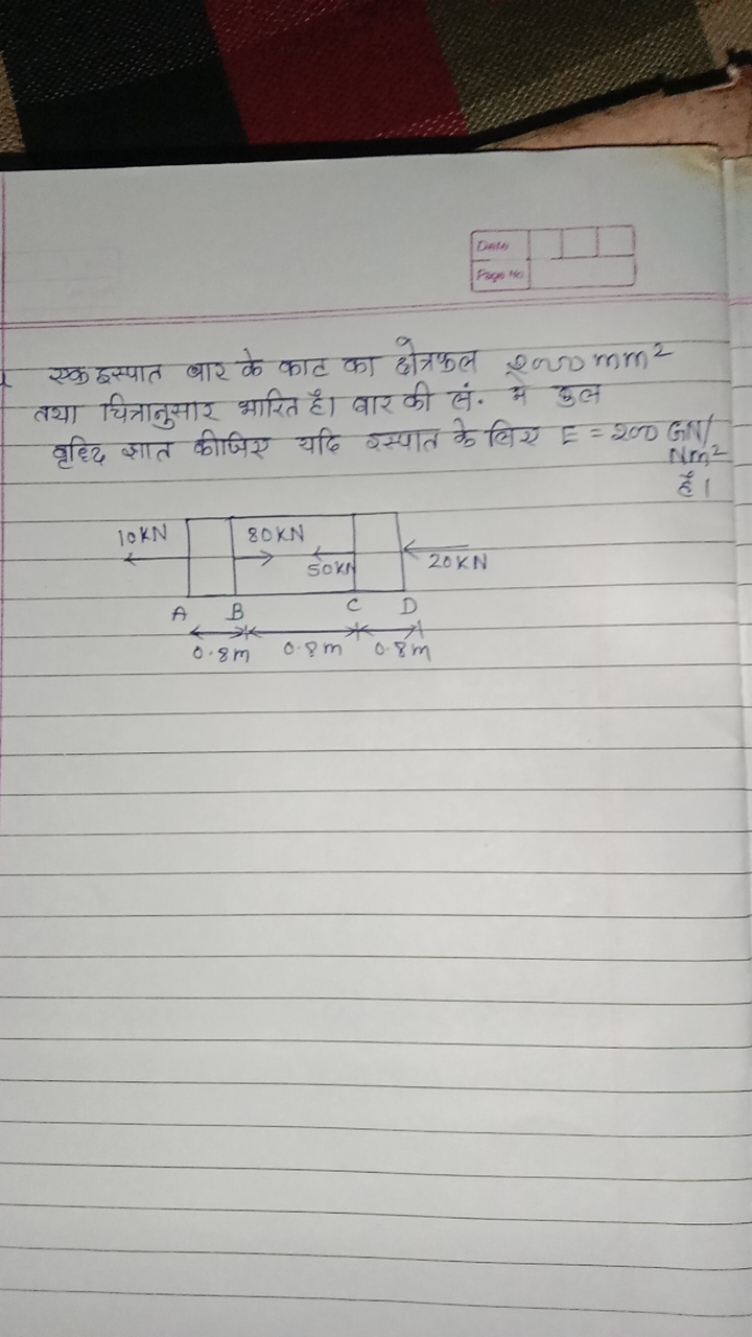 Date
Page No
एक इस्पात बार के काट का क्षेत्रफल 2000 mm²
तथा चित्रानुसार भारित है। बार की लं. में कुल
वृध्दि ज्ञात कीजिए यदि इस्पात के लिए E = 200 GN/
Nm²
है।
10KN 80KN
50KN 20KN
A B C D
0.8m 0.8m 0.8m